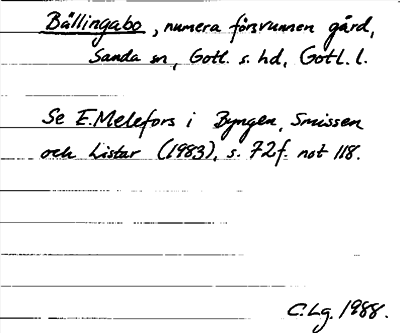 Bällingabo, numera försvunnen gård,
Sanda sn, Gotl. s. hd, Gotl. l.
Se E. Melefors i Byngen, Smissen
och Listar (1983), s. 72f. not 118.
C.Lg. 1988.